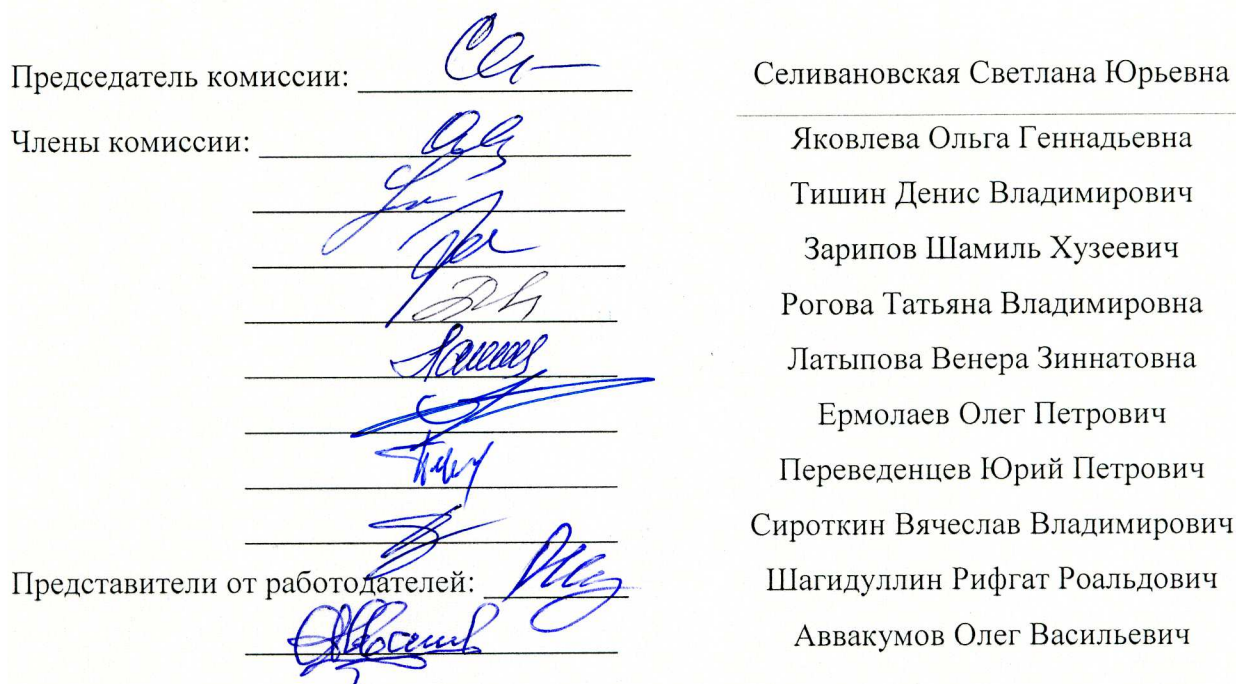 Председатель комиссии: Селивановская Светлана Юрьевна
Члены комиссии: Яковлева Ольга Геннадьевна
Тишин Денис Владимирович
Зарипов Шамиль Хузеевич
Рогова Татьяна Владимировна
Латыпова Венера Зиннатовна
Ермолаев Олег Петрович
Переведенцев Юрий Петрович
Сироткин Вячеслав Владимирович
Представители от работодателей: Шагидуллин Рифгат Роальдович
Аввакумов Олег Васильевич